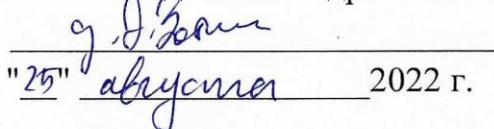 "25" августа 2022 г.